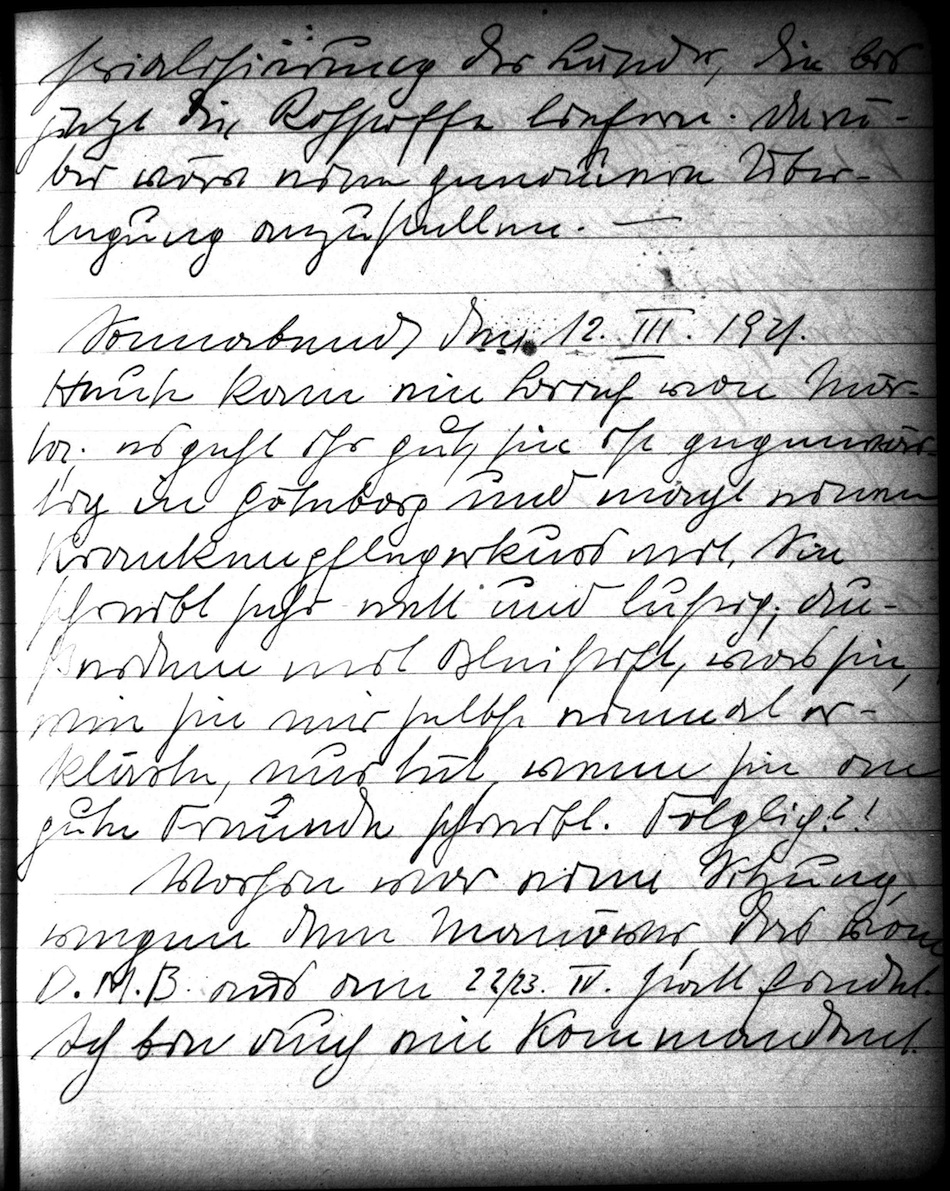 serialisierung der Länder, die bis
jetzt die Rohstoffe liefern. Darü-
ber wäre eine genauere Über-
legung anzustellen. —
Sonnabend den 12. III. 1921.
Heute kam ein Brief von Mär-
ta; es geht ihr gut, sie ist gegenwär-
tig in Göteborg und macht einen
Krankenpflegerkurs mit. Sie
schreibt sehr nett und lustig; au-
sserdem mit Bleistift, was sie,
wie sie mir selbst einmal er-
klärte, nur tut, wenn sie an
gute Freunde schreibt. Folglich?!
Vorhin war eine Sitzung
wegen dem Manöver, das vom
D.M.B. aus am 22/23. IV. stattfindet.
Ich bin auch ein Kommandant.